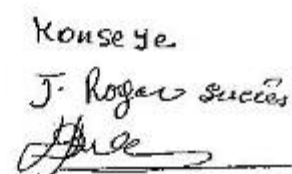 Konseye
J. Roger succès